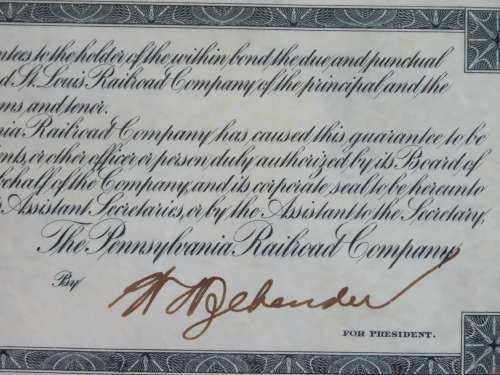 ntees to the holder of the within bond the due and punctual
d St. Louis Railroad Company, of the principal, and the
ms and tenor.
nia Railroad Company has caused this guarantee to be
nts, or other officer or person duly authorized by its Board of
behalf of the Company, and its corporate seal to be hereunto
Assistant Secretaries, or by the Assistant to the Secretary,
The Pennsylvania Railroad Company
By
FOR PRESIDENT.